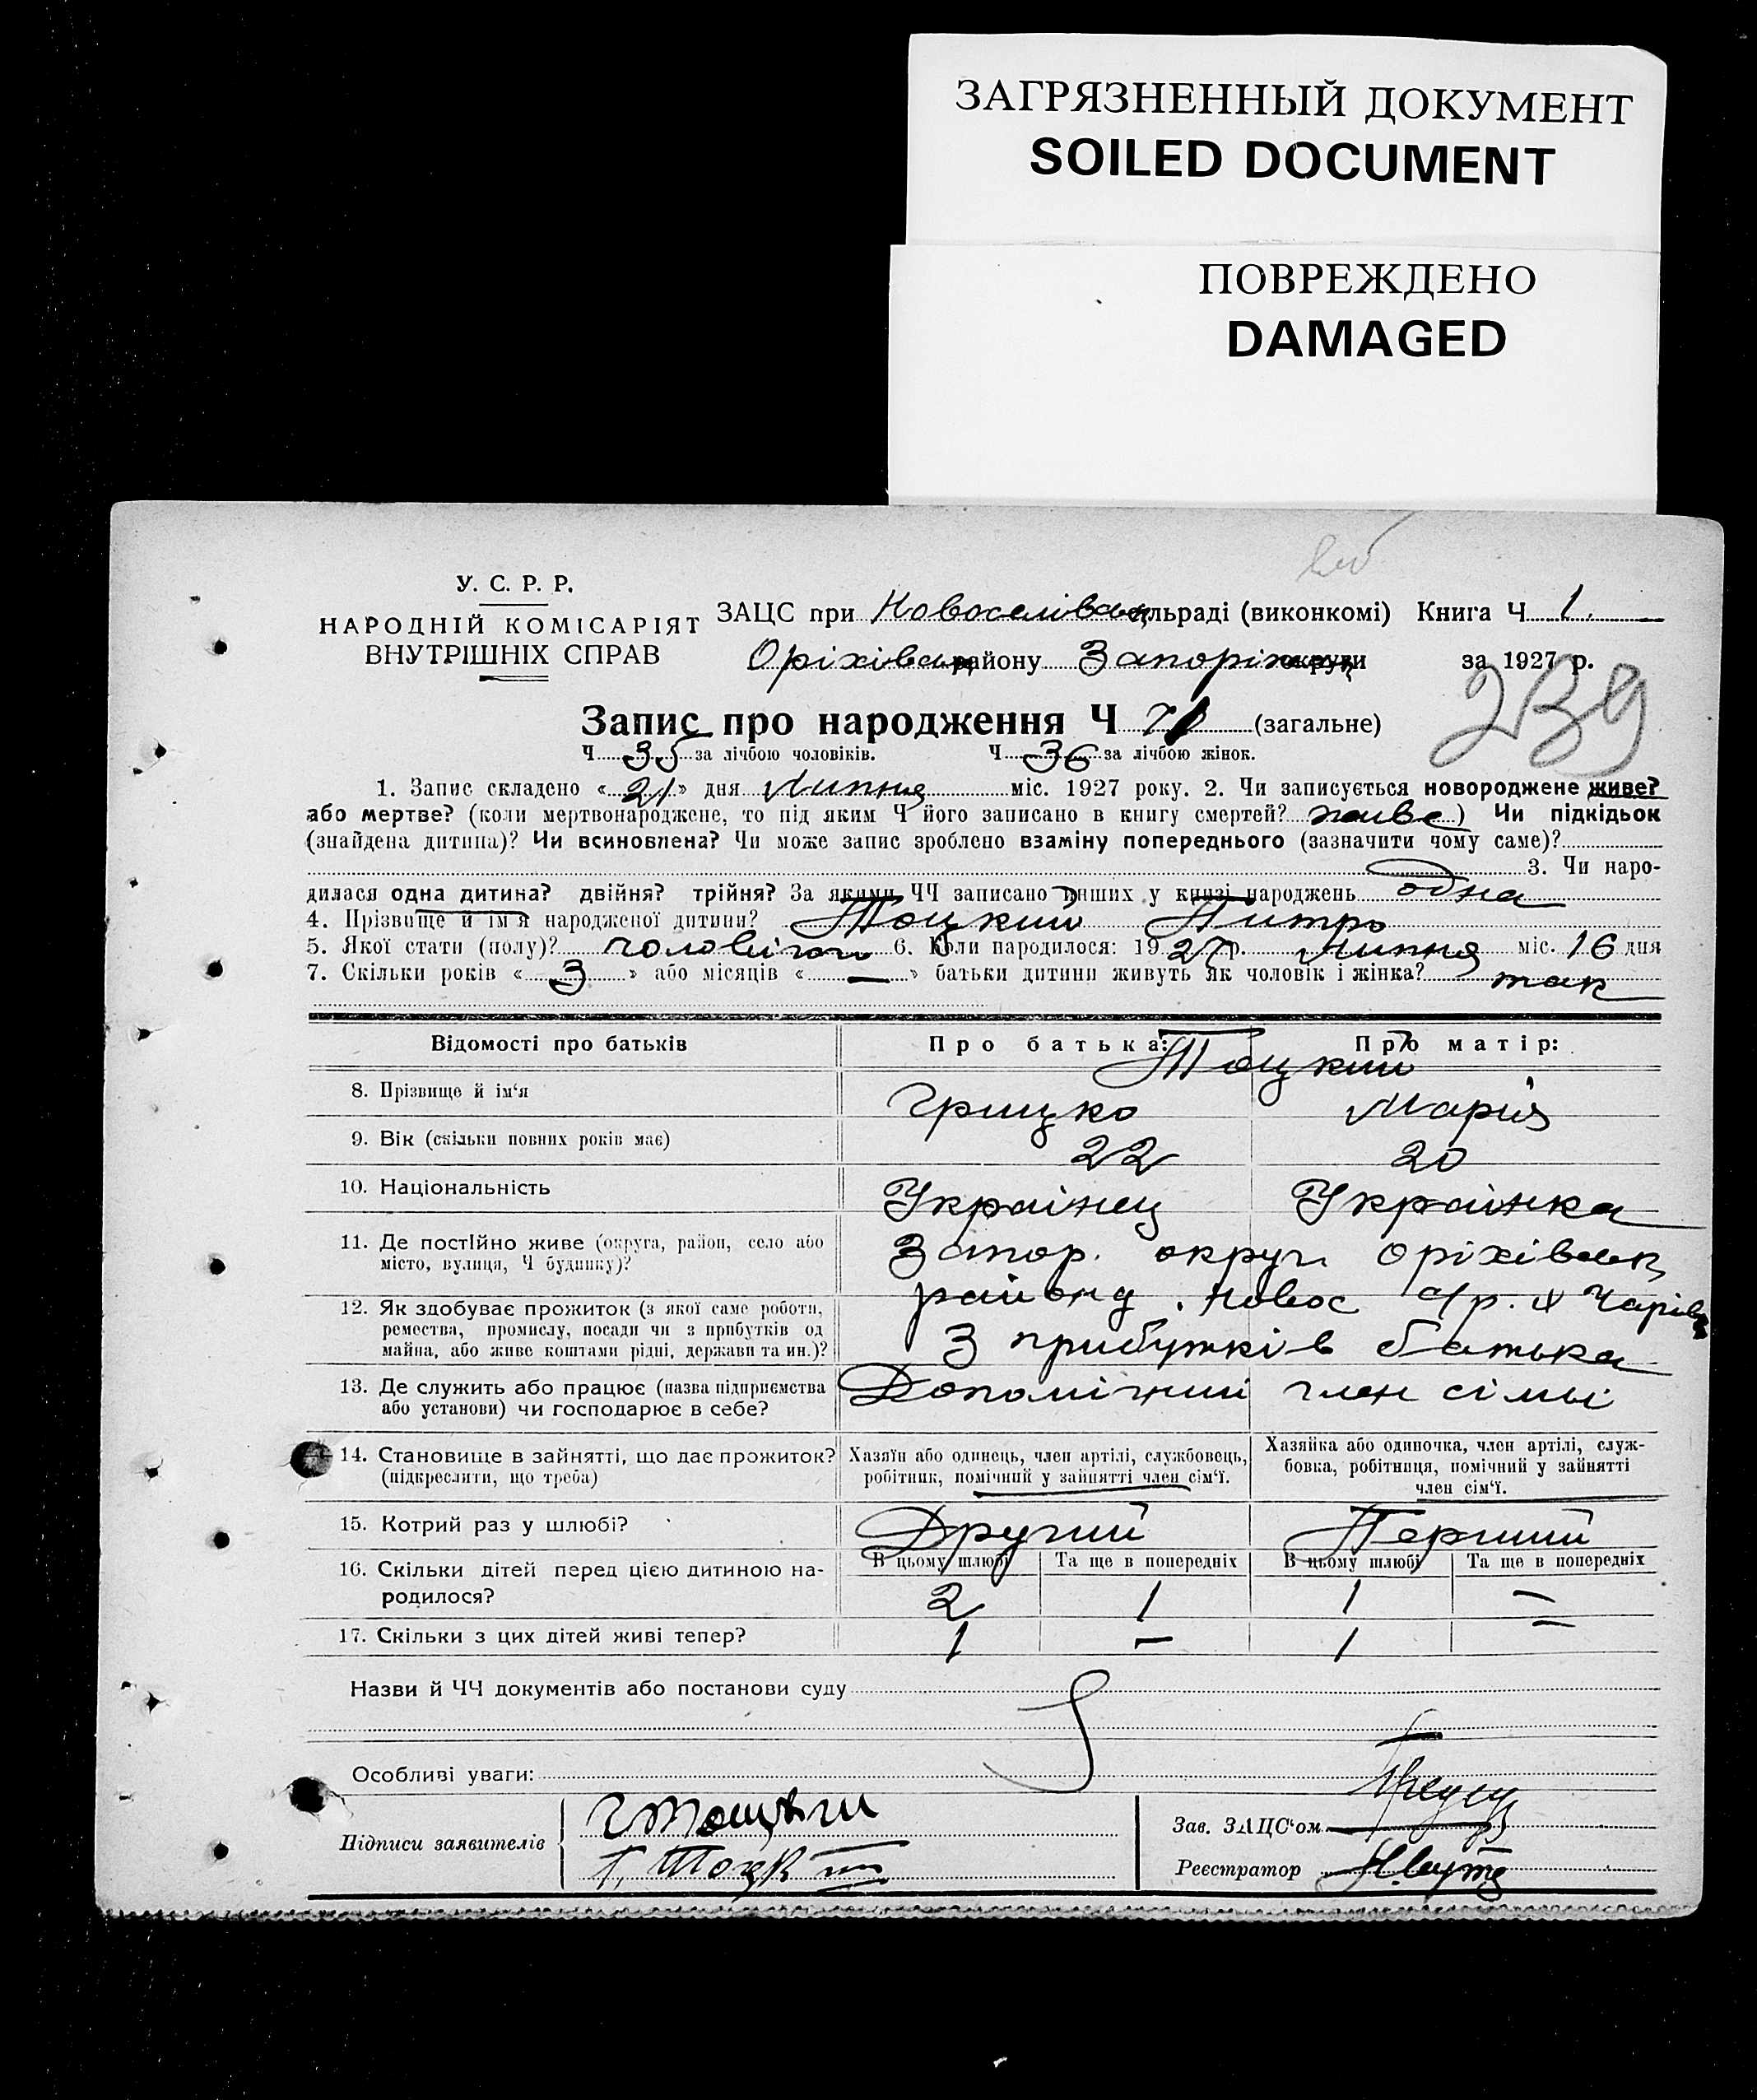 ЗАГРЯЗНЕННЫЙ ДОКУМЕНТ
SOILED DOCUMENT
ПОВРЕЖДЕНО
DAMAGED
У. С. Р. Р.
НАРОДНІЙ КОМІСАРІЯТ
ВНУТРІШНІХ СПРАВ
ЗАЦС при Новоселівськ сільраді (виконкомі) Книга Ч 1.
Оріхівськ району Запоріжськ округи за 1927 р.
239
Запис про народження Ч 71 (загальне)
Ч 35 за лічбою чоловіків. Ч 36 за лічбою жінок.
1. Запис складено «21» дня Липня міс. 1927 року. 2. Чи записується новороджене живе?
або мертве? (коли мертвонароджене, то під яким Ч його записано в книгу смертей? живе) Чи підкідьок
(знайдена дитина)? Чи всиновлена? Чи може запис зроблено взаміну попереднього (зазначити чому саме)?
3. Чи наро-
дилася одна дитина? двійня? трійня? За якими ЧЧ записано інших у книзі народжень одна
4. Прізвище й ім'я народженої дитини? Тоцкий Питро
5. Якої стати (полу)? чоловічої 6. Коли народилося: 1927 р. Липня міс. 16 дня
7. Скільки років «3» або місяців «—» батьки дитини живуть як чоловік і жінка? так
Відомості про батьків Про батька: Про матір:
Тоцкий
8. Прізвище й ім'я Грицко Марія
9. Вік (скільки повних років має) 22 20
10. Національність Українец Українка
11. Де постійно живе (округа, район, село або місто, вулиця, Ч будинку)?
Запор. округи Оріхівськ
району. Новос с/р. х Чарівн
12. Як здобуває прожиток (з якої саме роботи,
ремества, промислу, посади чи з прибутків од
майна, або живе коштами рідні, держави та ин.)?
З прибутків батька
13. Де служить або працює (назва підприємства
або установи) чи господарює в себе?
Допомічний член сімьі
14. Становище в зайнятті, що дає прожиток?
(підкреслити, що треба)
Хазяїн або одинець, член артілі, службовець,
робітник, помічний у зайнятті член сім'ї.
Хазяйка або одиночка, член артілі, служ-
бовка, робітниця, помічний у зайнятті
член сім'ї.
15. Котрий раз у шлюбі? Другий Перший
В цьому шлюбі Та ще в попередніх В цьому шлюбі Та ще в попередніх
16. Скільки дітей перед цією дитиною на-
родилося? 2 1 1 —
17. Скільки з цих дітей живі тепер? 1 — 1 —
Назви й ЧЧ документів або постанови суду
Особливі уваги:
Підписи заявителів
Г Тоцкги
Г. Тоцкий
Зав. ЗАЦС'ом
Реєстратор